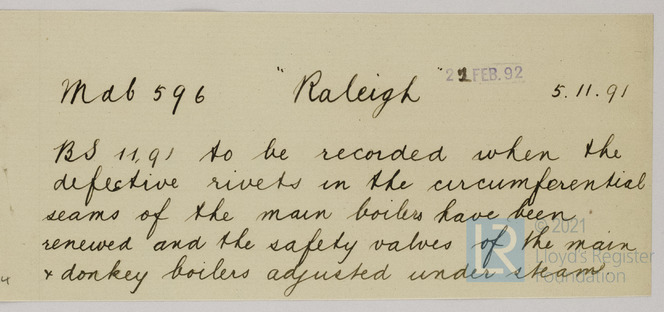 Mdb 596 "Raleigh" 22 FEB. 92 5.11.91
BS 11,91 to be recorded when the
defective rivets in the circumferential
seams of the main boilers have been
renewed and the safety valves of the main
& donkey boilers adjusted under steam
© 2021
Lloyd's Register
Foundation
LR